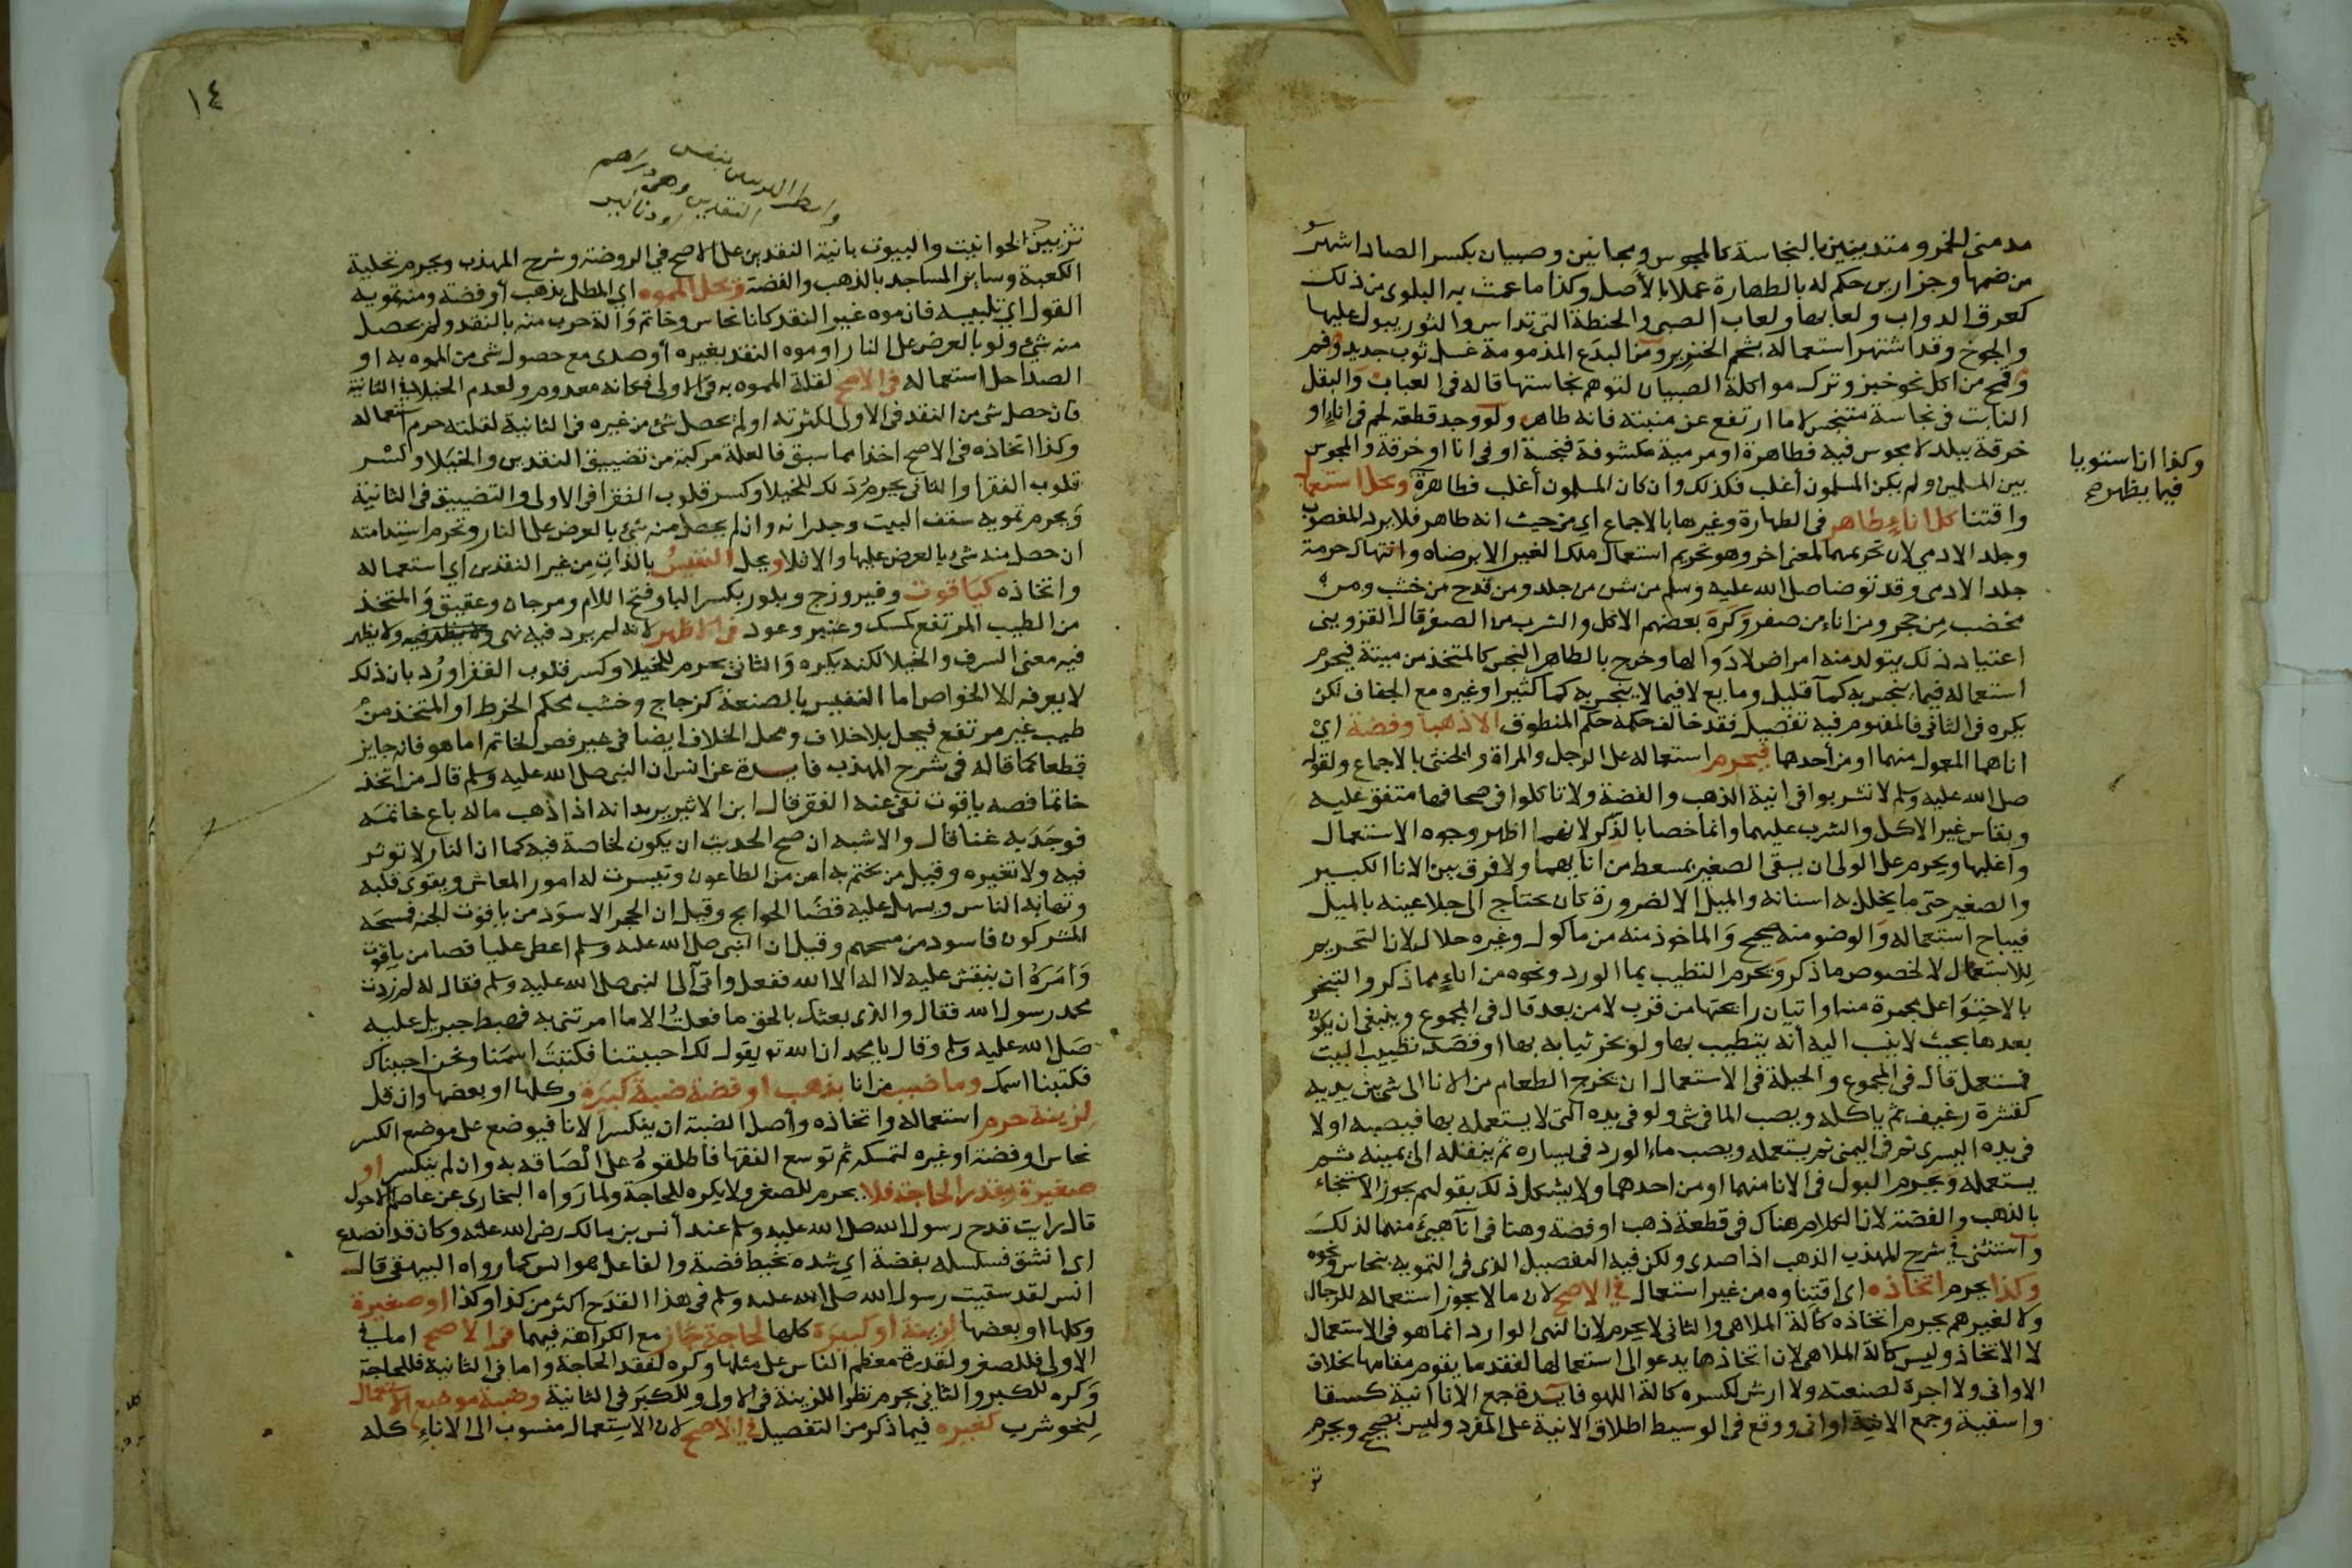 مدمنى الخمر ومتدينين بالنجاسة كالمجوس ومجانين وصبيان بكسر الصاد اشهر
من ضمها وجزارين حكم له بالطهارة عملا بالأصل وكذا ما عمت به البلوى من ذلك
كعرق الدواب ولعابها ولعاب الصبى والحنطة التى تداس والثور يبول عليها
والجوخ وقد اشتهر استعماله بشحم الخنزير ومن البدع المذمومة غسل ثوب جديد وقمح
وفم من اكل نحو خبز وترك مواكلة الصبيان لتوهم نجاستها قاله فى العباب والبقل
النابت فى نجاسة متنجس لا ما ارتفع عن منبته فانه طاهر ولو وجد قطعة لحم فى اناء او
خرقة ببلد لا مجوس فيه فطاهرة او مرمية مكشوفة فنجسة او فى انا او خرقة والمجوس
بين المسلمين ولم يكن المسلمون أغلب فكذلك وان كان المسلمون أغلب فطاهرة ويحل استعمال
وكذا ان استويا
فيما يظهر صح
واقتنا كل اناء طاهر فى الطهارة وغيرها بالاجماع اي من حيث انه طاهر فلا يرد المغصوب
وجلد الادمي لان تحريمهما لمعنى اخر وهو تحريم استعمال ملك الغير الا برضاه وانتهاك حرمة
جلد الادمى وقد توضا صلى الله عليه وسلم من شن من جلد ومن قدح من خشب ومن
مخضب من حجر ومن اناء من صفر وكره بعضهم الاكل والشرب من الصفر قال القزوينى
اعتياد ذلك يتولد منه امراض لا دوا لها وخرج بالطاهر النجس كالمتخذ من ميتة فيحرم
استعماله فيما ينجس به كما قليل ومايع لا فيما لا ينجس به كما كثير او غيره مع الجفاف لكن
يكره فى الثانى فالمفهوم فيه تفصيل فقد خالف حكمه حكم المنطوق الا ذهبا وفضة اي
اناهما المعمول منهما او من أحدها فيحرم استعماله على الرجل والمراة والخنثى بالاجماع ولقوله
صلى الله عليه وسلم لا تشربوا فى انية الذهب والفضة ولا تاكلوا فى صحافها متفق عليه
ويقاس غير الاكل والشرب عليهما وانما خصا بالذكر لانهما اظهر وجوه الاستعمال
وأغلبها ويحرم على الولى ان يسقى الصغير بمسعط من انايهما ولا فرق بين الانا الكبير
والصغير حتى ما يخلل به اسنانه والميل الا لضرورة كان يحتاج الى جلا عينه بالميل
فيباح استعماله والوضو منه صحيح والماخوذ منه من ماكول وغيره حلال لان التحريم
للاستعمال لا لخصوص ما ذكر ويحرم التطيب بما الورد ونحوه من اناء مما ذكر والتبخر
بالاحتوا على مجمرة منه او اتيان رائحتها من قرب لا من بعد قال فى المجموع وينبغى ان يكون
بعدها بحيث لا ينسب اليه أنه يتطيب بها ولو بخر ثيابه بها او قصد تطييب البيت
فمستعمل قال فى المجموع والحيلة فى الاستعمال ان يخرج الطعام من الانا الى شئ بين يديه
كقشرة رغيف ثم ياكله ويصب الما فى شى ولو فى يده التى لا يستعمله بها فيصبه اولا
فى يده اليسرى ثم فى اليمنى ثم يستعمله ويصب ماء الورد فى يساره ثم ينقله الى يمينه ثم
يستعمله ويحرم البول فى الانا منهما او من احدهما ولا يشكل ذلك بقولهم يجوز الاستنجاء
بالذهب والفضة لان الكلام هناك فى قطعة ذهب او فضة وهنا فى انآ هيئ منهما لذلك
واستثنى فى شرح المهذب الذهب اذا صدى ولكن فيه التفصيل الذى فى التمويه بنحاس ونحوه
وكذا يحرم اتخاذه اى اقتناوه من غير استعمال فى الاصح لان ما لا يجوز استعماله للرجال
ولا لغيرهم يحرم اتخاذه كآلة الملاهى والثانى لا يحرم لان النهى الوارد انما هو فى الاستعمال
لا الاتخاذ وليس كالة الملاهى لان اتخاذها يدعو الى استعمالها لفقد ما يقوم مقامها بخلاف
الاوانى ولا اجرة لصنعته ولا ارش لكسره كالة اللهو فايدة جمع الانا انية كسقا
واسقية وجمع الانية اوانى ووقع فى الوسيط اطلاق الانية على المفرد وليس بصحيح ويحرم
تز
١٤
تزيين الحوانيت والبيوت بانية النقدين على الاصح فى الروضة وشرح المهذب ويحرم تحلية
الكعبة وساير المساجد بالذهب والفضة ويحل المموه اي المطلى بذهب أو فضة ومنه تمويه
القول اي تلبيسه فان موه غير النقد كانا نحاس وخاتم وآلة حرب منه بالنقد ولم يحصل
منه شئ ولو بالعرض على النار او موه النقد بغيره أو صدى مع حصول شى من المموه به او
الصدا حل استعماله فى الاصح لقلة المموه به فى الاولى فكانه معدوم ولعدم الخيلا فى الثانية
فان حصل شى من النقد فى الاولى لكثرته او لم يحصل شئ من غيره فى الثانية لقلته حرم استعماله
وكذا اتخاذه فى الاصح اخذا مما سبق فالعلة مركبة من تضييق النقدين والخيلا وكسر
قلوب الفقرا والثانى يحرم ذلك للخيلا وكسر قلوب الفقرا فى الاولى والتضييق فى الثانية
ويحرم تمويه سقف البيت وجدرانه وان لم يحصل منه شئ بالعرض على النار وتحرم استدامته
ان حصل منه شئ بالعرض عليها والا فلا ويحل النفيس بالذات من غير النقدين اي استعماله
واتخاذه كياقوت وفيروزج وبلور بكسر البا وفتح اللام ومرجان وعقيق والمتخذ
من الطيب المرتفع كمسك وعنبر وعود فى الاظهر لانه لم يرد فيه نهى ولا يظهر
فيه معنى السرف والخيلا لكنه يكره والثانى يحرم للخيلا وكسر قلوب الفقرا ورد بان ذلك
لا يعرفه الا الخواص اما النفيس بالصنعة كزجاج وخشب محكم الخرط او المتخذ من
طيب غير مرتفع فيحل بلا خلاف ومحل الخلاف ايضا فى غير فص الخاتم اما هو فانه جايز
قطعا كما قاله فى شرح المهذب فايدة عن انس ان النبى صلى الله عليه وسلم قال من اتخذ
خاتما فصه ياقوت نفى عنه الفقر قال ابن الاثير يريد انه اذا ذهب ماله باع خاتمه
فوجد به غنا قال والاشبه ان صح الحديث ان يكون لخاصة فيه كما ان النار لا توثر
فيه ولا تغيره وقيل من تختم به امن من الطاعون وتيسرت له امور المعاش ويقوى قلبه
وتهابه الناس ويسهل عليه قضا الحوايج وقيل ان الحجر الاسود من ياقوت الجنة فمسحه
المشركون فاسود من مسحهم وقيل ان النبى صلى الله عليه وسلم اعطى عليا فصا من ياقوت
وامره ان ينقش عليه لا اله الا الله ففعل واتى الى النبى صلى الله عليه وسلم فقال له لم زدت
محمد رسول الله فقال والذى بعثك بالحق ما فعلت الا ما امرتنى به فهبط جبريل عليه
صلى الله عليه وسلم وقال يا محمد ان الله تع يقول لك احببتنا فكتبت اسمنا ونحن احببناك
فكتبنا اسمك وما ضبب من انا بذهب او فضة ضبة كبيرة وكلها او بعضها وان قل
لزينة حرم استعماله واتخاذه وأصل الضبة ان ينكسر الانا فيوضع على موضع الكسر
نحاس او فضة او غيره لتمسكه ثم توسع الفقها فاطلقوه على الصاقه به وان لم ينكسر او
صغيرة بقدر الحاجة فلا يحرم للصغر ولا يكره للحاجة ولما رواه البخارى عن عاصم الاحول
قال رايت قدح رسول الله صلى الله عليه وسلم عند أنس بن مالك رضى الله عنه وكان قد انصدع
اى انشق فسلسله بفضة اي شده بخيط فضة والفاعل هو انس كما رواه البيهقى قال
انس لقد سقيت رسول الله صلى الله عليه وسلم فى هذا القدح اكثر من كذا وكذا او صغيرة
وكلها او بعضها لزينة او كبيرة كلها لحاجة جاز مع الكراهة فيهما فى الاصح اما فى
الاولى فللصغر ولقدرة معظم الناس على مثلها وكره لفقد الحاجة واما فى الثانية فللحاجة
وكره للكبر والثانى يحرم نظرا للزينة فى الاولى وللكبر فى الثانية وضبة موضع الاستعمال
لنحو شرب كغيره فيما ذكر من التفصيل فى الاصح لان الاستعمال منسوب الى الاناء كله